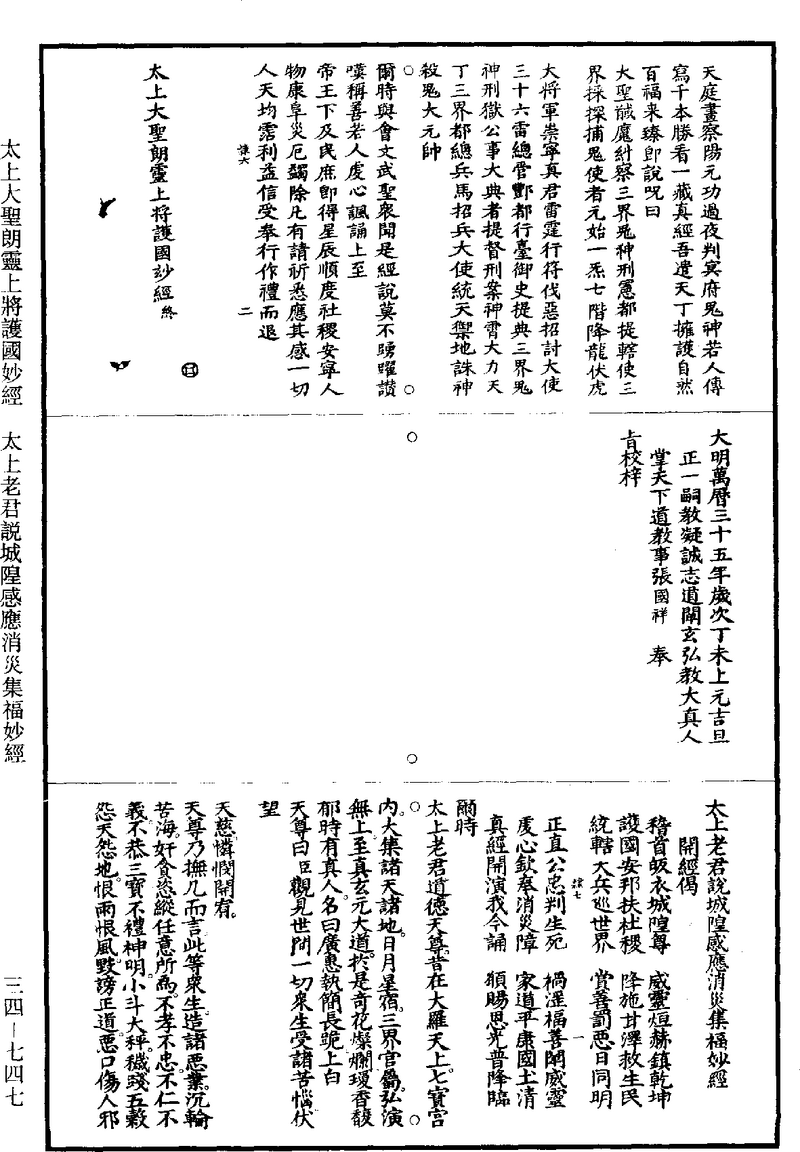 天庭晝察陽元功過夜判冥府鬼神若人傳
寫千本勝看一藏真經吾遣天丁擁護自然
百福來臻即說呪曰
大聖馘魔糾察三界鬼神刑憲都提轄使三
界採探捕鬼使者元始一炁七階降龍伏虎
大將軍崇寧真君雷霆行符伐惡招討大使
三十六雷總管酆都行臺御史提典三界鬼
神刑獄公事大典者提督刑案神霄大力天
丁三界都總兵馬招兵大使統天禦地誅神
殺鬼大元帥
爾時與會文武聖衆聞是經說莫不踴躍讃
嘆稱善若人虔心諷誦上至
帝王下及民庶即得星辰順度社稷安寧人
物康阜災厄蠲除凡有請祈悉應其感一切
人天均霑利益信受奉行作禮而退
二
太上大聖朗靈上将護國妙經終
大明萬曆三十五年歲次丁未上元吉旦
正一嗣教凝誠志道闡玄弘教大真人
掌天下道教事張國祥 奉
旨校梓
太上老君說城隍感應消災集福妙經
開經偈
稽首皈衣城隍尊 威靈烜赫鎮乾坤
護國安邦扶社稷 降施甘澤救生民
統轄大兵巡世界 賞善罰惡日同明
正直公忠判生死 禍淫福善闡威靈
虔心欽奉消災障 家道平康國土清
真經開演我今誦 願賜恩光普降臨
爾時
太上老君道德天尊昔在大羅天上七寶宮
內。大集諸天諸地。日月星宿。三界官屬弘演
無上至真玄元大道。於是奇花燦爛瑷香馥
郁時有真人。名曰廣惠執簡長跪上白
天尊曰臣觀見世間一切衆生受諸苦惱伏
望
天慈憐憫開宥。
天尊乃撫几而言此等衆生。造諸惡業。沉輪
苦海。奸貪恣縱。任意所為。不孝不忠。不仁不
義。不恭三寶不禮神明。小斗大秤。穢踐五穀
怨天怨地。恨雨恨風。毀謗正道。惡口傷人。邪
太上大聖朗靈上將護國妙經 太上老君説城隍感應消災集福妙經
三四－七四七